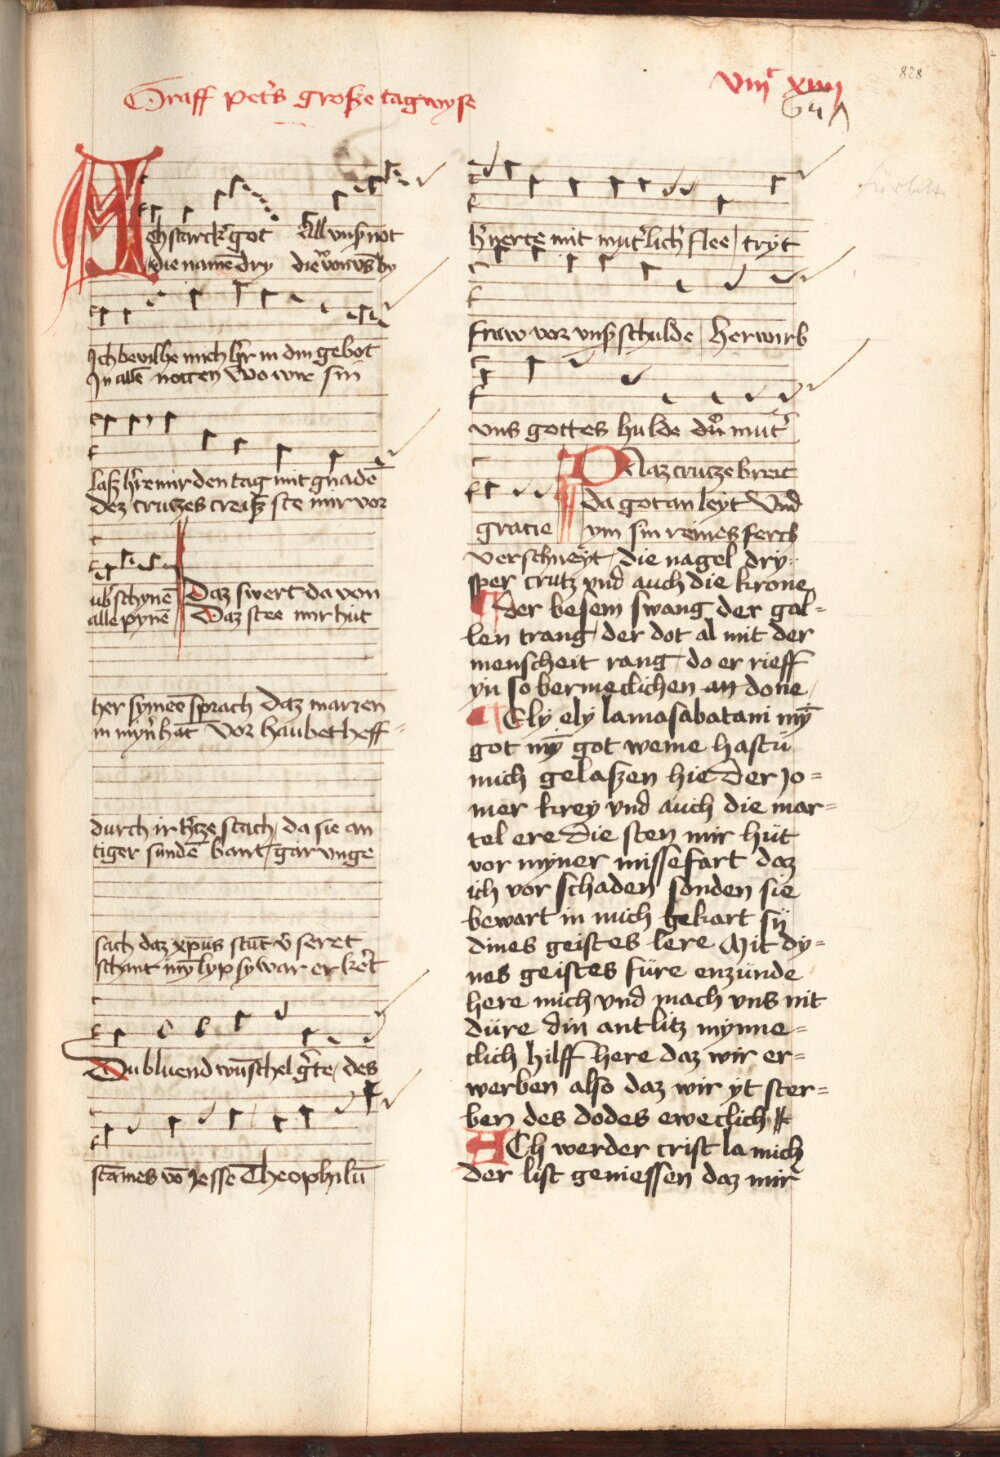 Graff pet's große tagwyse
viijc xiiij
828
Mehstarck' got All vnß not
die namē dry die vō vns by
Ich bevilhe mich h'r in din gebot
In allē noten wo wir sin
laß h're mir den tag mit gnadē
dez crutzes creiß ste mir vor
ub' schynē Daz swert da von
alle pynē Daz stee mir hut
her symeō sprach daz marien
in myn' hāt vor haubetheff-
durch ir h'tze stach / da sie an
tiger sundē bant / gar vnge
sach daz xpus stūt v' seret
schant mȳ lyp sy war er ker't
Du bluend wūschel g'te / des
stāmes vō Jesse Theophilū
h'nerte mit mut'lich' flee / tryt
fraw vor vnß schulde / herwirb
uns gottes hulde du mut'
gracie
Daz crutze breit
da got an leyt Vnd
ym sin reines ferch
verschneyt / die nagel dry
sper crutz vnd auch die krone
der besem swang der gal=
len trang / der dot al mit der
menscheit rang / do er rieff
yn so bermeclichen an done /
Ely ely lamasabatani mȳ
got mȳ got weme hastu
mich gelaßen hie Der Jo=
mer krey vnd auch die mar=
tel ere die sten mir hut
vor myner missefart daz
ich vor schaden sonden sie
bewart in mich gekart sy
dines geistes lere Mit dy=
nes geistes füre enzünde
here mich vnd mach vns nit
düre din antlitz mynne=
clich hilff here daz wir er=
werben also daz wir yt ster=
ben des dodes eweclich
Ach werder crist la mich
der list geniessen daz mir